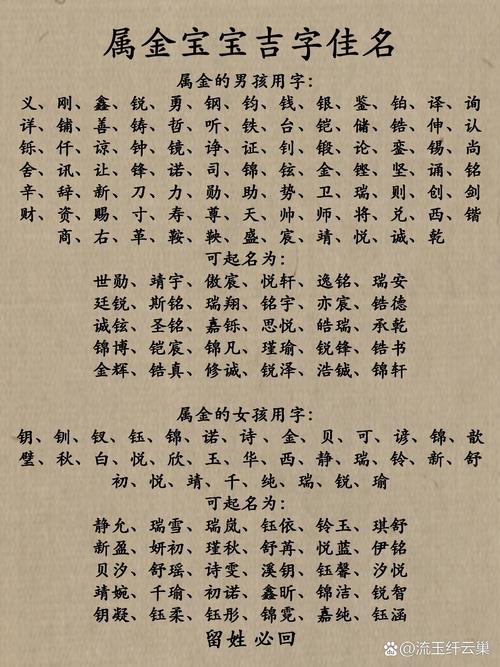 属金宝宝吉字佳名
属金的男孩用字：
义、刚、鑫、锐、勇、钢、钧、钱、银、鉴、铂、译、询
详、铺、善、铸、哲、听、铁、台、铠、储、锆、伸、认
铄、仟、谅、钟、镜、诤、证、钊、锻、论、銮、锡、尚
舍、讯、让、锋、诺、司、锦、铉、金、铿、坚、诵、铭
辛、辞、新、刀、力、勋、助、势、卫、瑞、则、创、剑
财、资、赐、寸、寿、尊、天、帅、师、将、兑、西、锴
商、右、革、鞍、鞅、盛、宸、靖、悦、诚、乾
可起名为：
世勋、靖宇、傲宸、悦轩、逸铭、瑞安
廷锐、斯铭、瑞翔、铭宇、亦宸、锆德
诚铉、圣铭、嘉铄、思悦、皓瑞、承乾
锦博、铠宸、锦凡、瑾瑜、锐锋、锆书
金辉、锆真、修诚、锐泽、浩铖、锦轩
属金的女孩用字：
钥、钏、钗、钰、锦、诺、诗、金、贝、可、谚、锦、歆
璧、秋、白、悦、欣、玉、华、西、静、瑞、铃、新、舒
初、悦、靖、千、纯、瑞、锐、瑜
可起名为：
静允、瑞雪、瑞岚、钰依、铃玉、琪舒
新盈、妍初、瑾秋、舒苒、悦蓝、伊铭
贝汐、舒瑶、诗雯、溪钥、钰馨、汐悦
靖婉、千瑜、初诺、鑫昕、锦洁、锐智
钥凝、钰柔、钰彤、锦霓、嘉纯、钰涵
留姓 必回
@流玉纤云巢